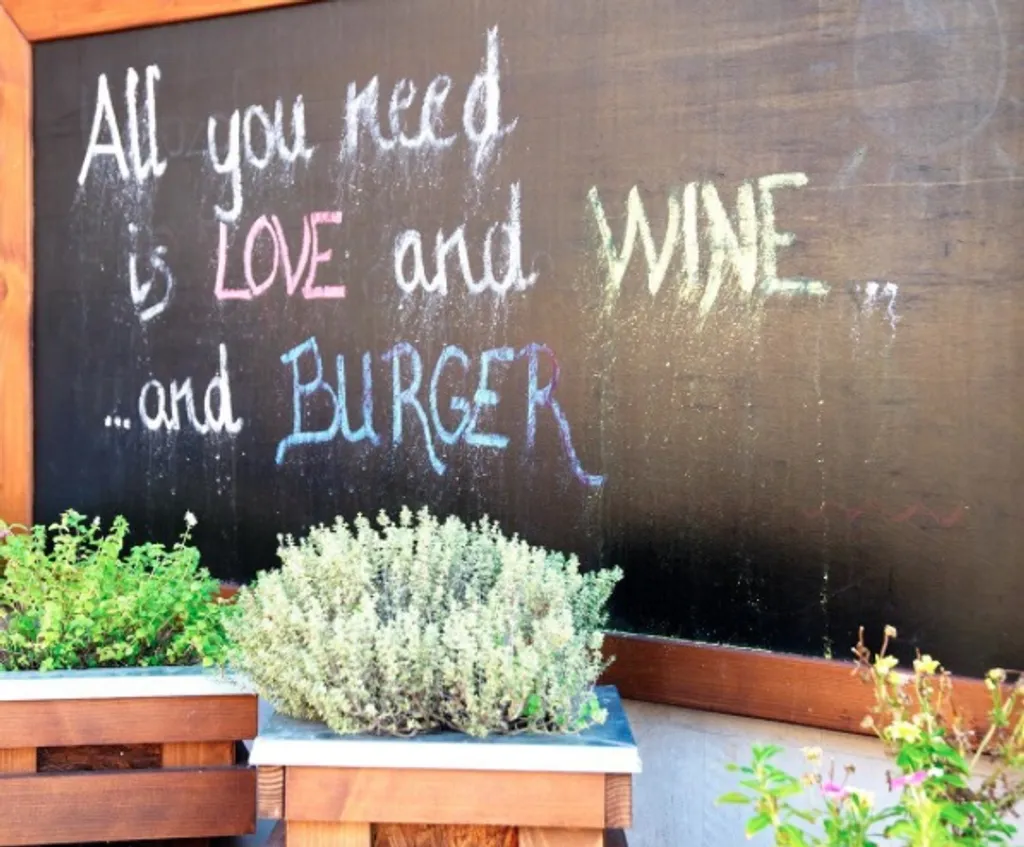 All you need
is LOVE and WINE...
...and BURGER